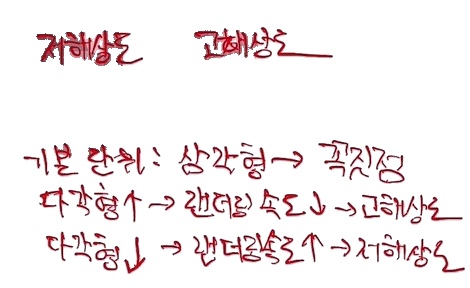 저해상도 고해상도
기본 단위: 삼각형 → 꼭짓점
다각형↑ → 랜더링 속도↓ → 고해상도
다각형↓ → 랜더링속도↑ → 저해상도